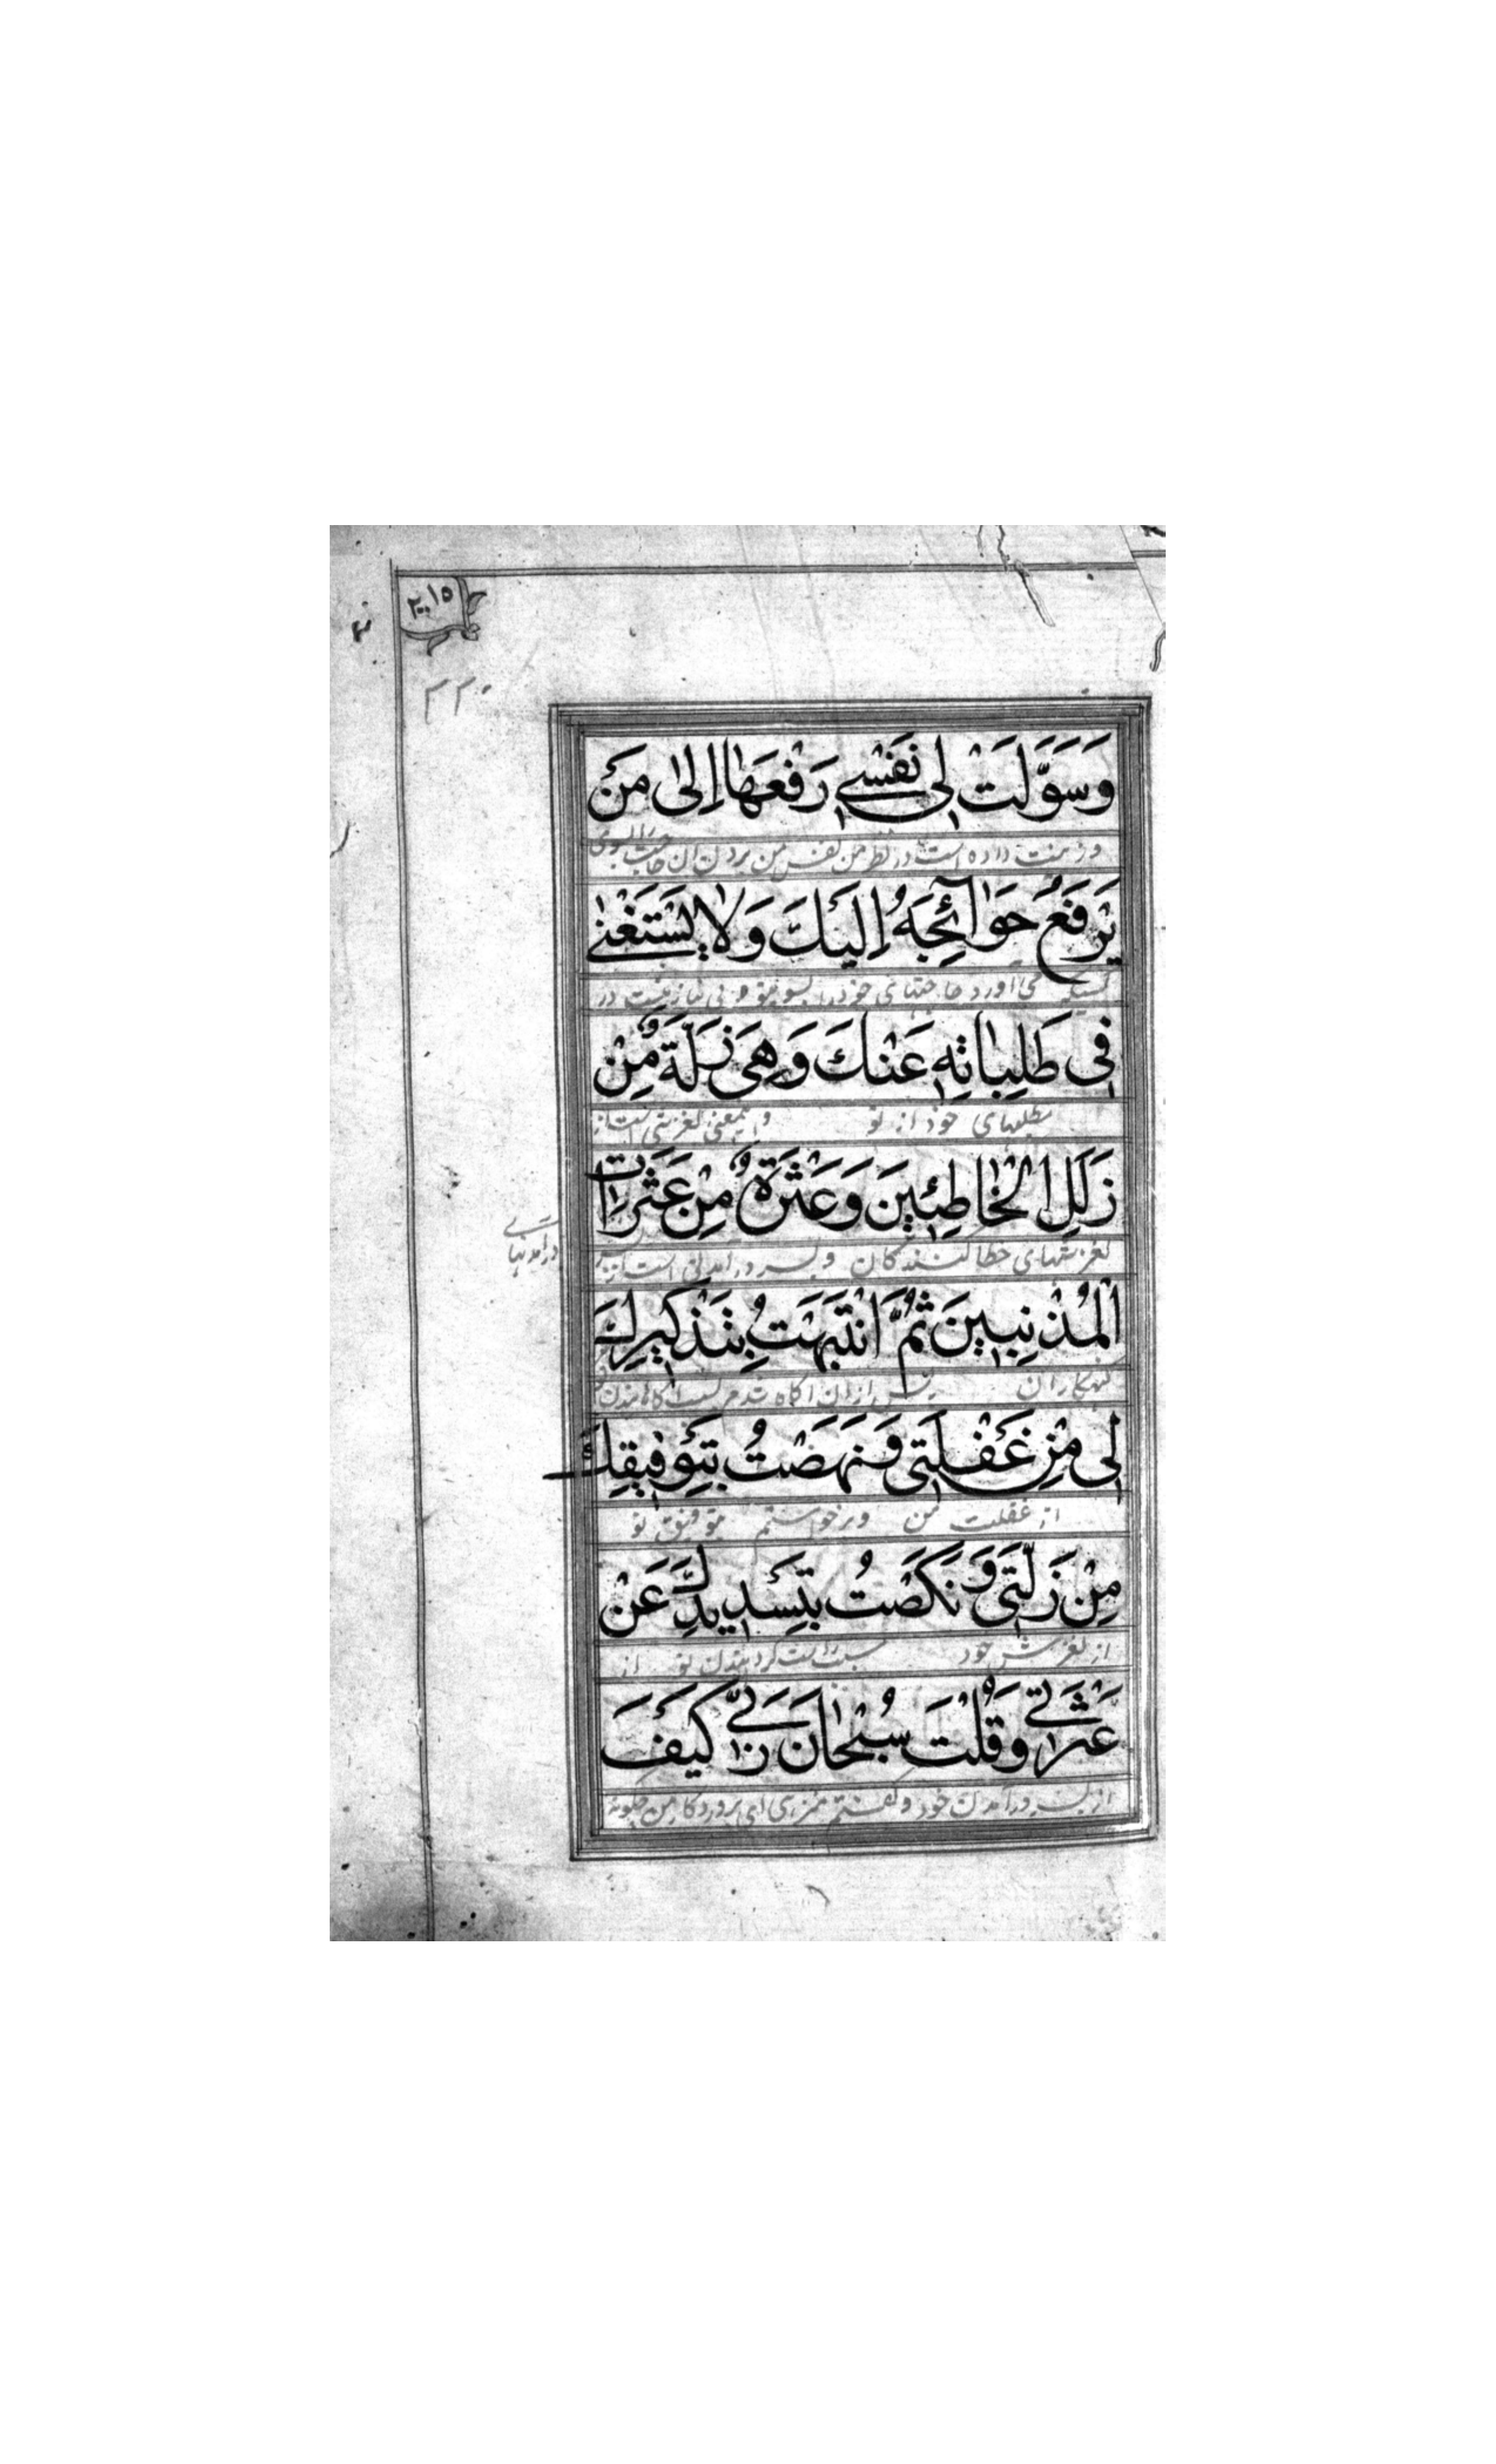 ٢٠١٥
٢٢٠
وَسَوَّلَتْ لِی نَفْسِی رَفْعَهَا اِلیٰ مَنْ
و زینت داده است در نظر من نفس من بردن آن حاجت بسوی
یَرْفَعُ حَوٰائِجَهُ اِلَیْكَ وَلاٰ یَسْتَغْنٰی
کسیکه می آورد حاجتهای خود را بسوی تو و بی نیاز نیست در
فِی طَلِبٰاتِهِ عَنْكَ وَهِیَ زَلَّةٌ مِنْ
مطلبهای خود از تو و اینمعنی لغزشی است از
زَلَلِ الْخٰاطِئِینَ وَعَثْرَةٌ مِنْ عَثَرَاتِ
لغزشهای خطا کنندگان و بسر در آمدنی است از بسر
در آمدنهای
الْمُذْنِبِینَ ثُمَّ انْتَبَهْتُ بِتَذْكِیرِكَ
گنهکاران پس از آن آگاه شدم بسبب آگاهانیدن تو
لِی مِنْ غَفْلَتِی وَنَهَضْتُ بِتَوْفِیقِكَ
از غفلت من و برخواستم بتوفیق تو
مِنْ زَلَّتِی وَنَكَصْتُ بِتَسْدِیدِكَ عَنْ
از لغزش خود بسبب راست گردانیدن تو از
عَثْرَتِی وَقُلْتُ سُبْحٰانَ رَبِّی كَیْفَ
از بسر در آمدن خود و گفتم منزهی ای پروردگار من چگونه